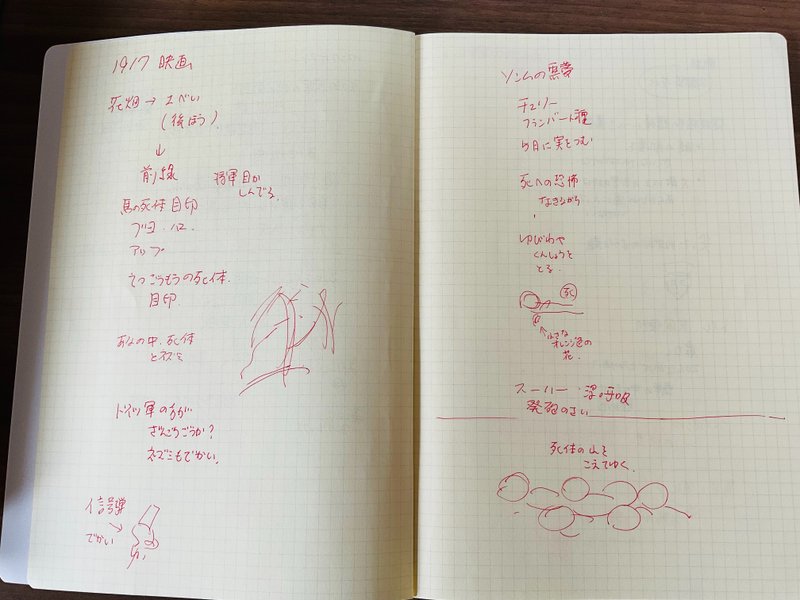 1917 映画
花畑→エベい
(後ぼう)
↓
前線
将軍目が
しんでる。
馬の死体 目印
ブヨ・ハエ
アップ
てつじょうもうの死体.
目印.
あなの中. 死体
とネズミ
ドイツ軍の方が
ざんごうごうか?
ネズミもでかい。
信号弾
でかい
ソンムの悪夢
チェリー
ランバート種
5月に実をつむ
死への恐怖
なきながら
ゆびわや
くんしょうを
とる.
死
↑小さな
オレンジ色の
花.
スーハー・深呼吸
発砲のさい
死体の山を
こえてゆく.